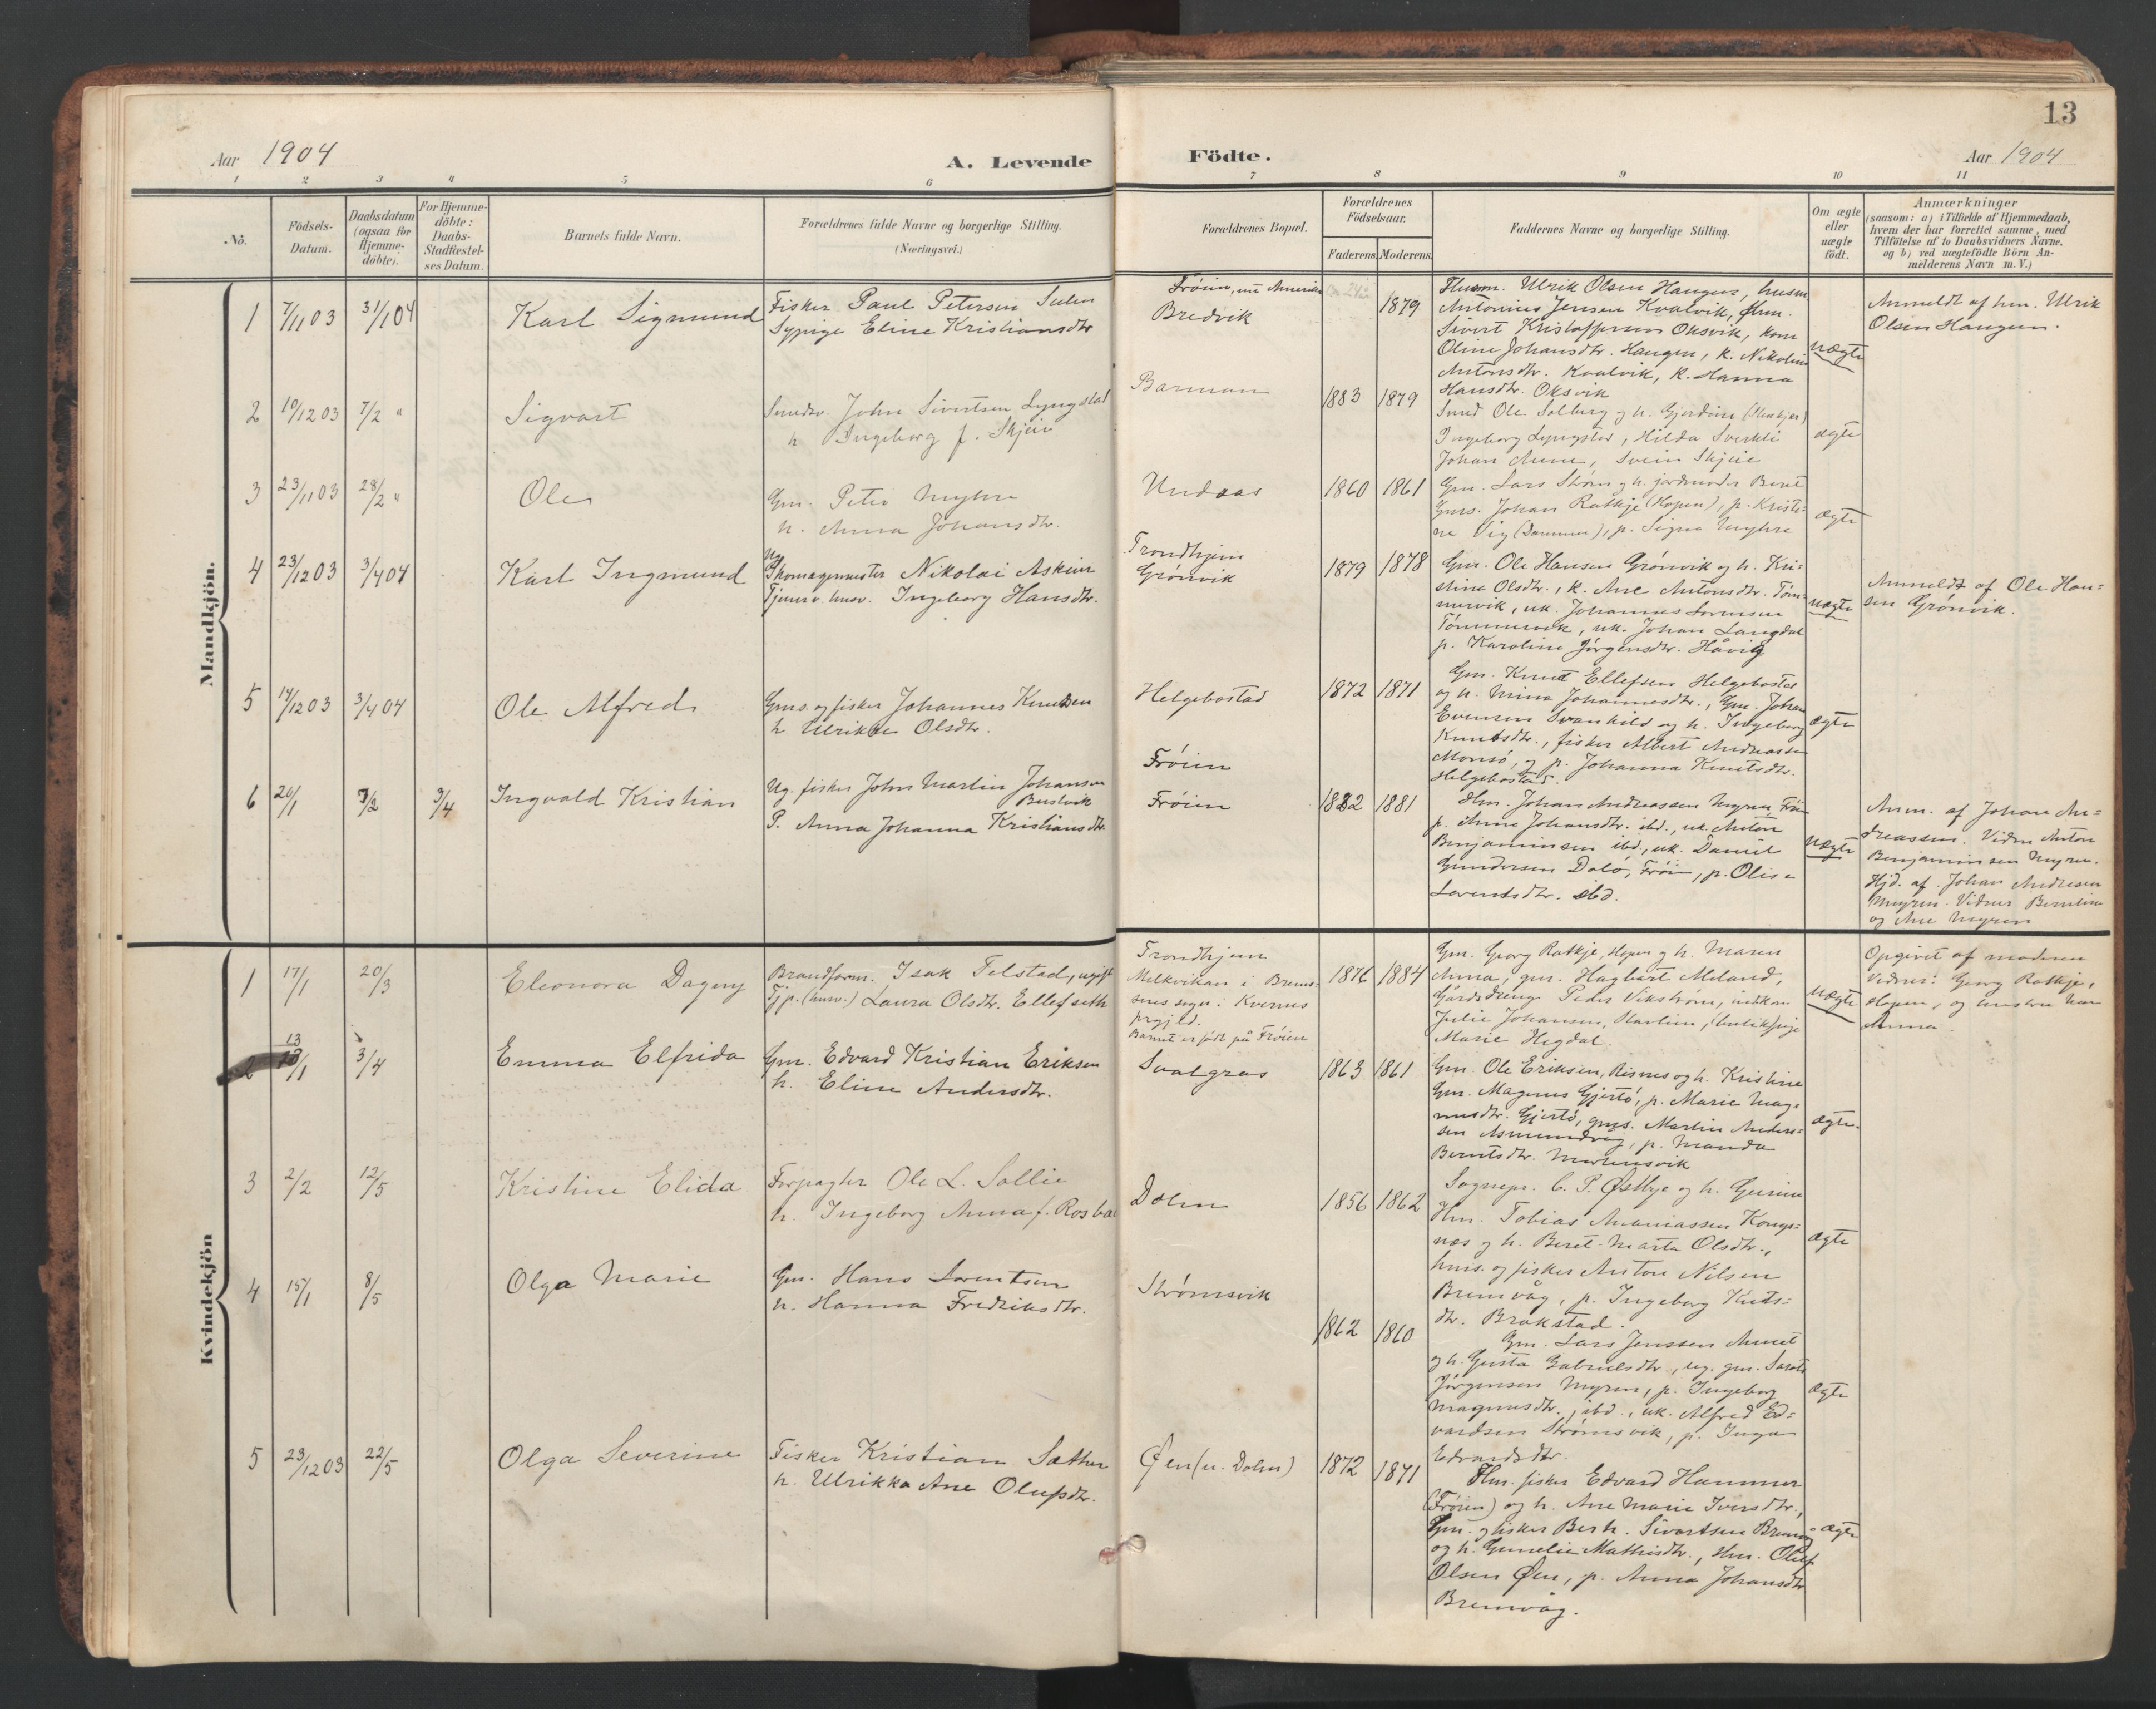 13
Aar 1904
A. Levende
Födte.
Aar 1904
1 2 3 4 5 6 7 8 9 10 11
No.
Födsels-
Datum.
Daabsdatum
(ogsaa for
Hjemme-
döbte).
For Hjemme-
döbte:
Daabs-
Stadfæstel-
ses Datum.
Barnets fulde Navn.
Forældrenes fulde Navne og borgerlige Stilling.
(Næringsvei.)
Forældrenes Bopæl.
Forældrenes
Födselsaar.
Faderens. Moderens.
Faddernes Navne og borgerlige Stilling.
Om ægte
eller
uægte
födt.
Anmærkninger
(saasom: a) i Tilfælde af Hjemmedaab,
hvem der har forrettet samme, med
Tilföielse af to Daabsvidners Navne.
og b) ved uægtefödte Börn An-
melderens Navn m. V.)
Mandkjön.
1 7/11 03 31/1 04 Karl Sigmund
Fisker Paul Petersen Sulen
Sypige Eline Kristiansdtr
Frøien, nu Amerika
Bredvik
1879
Husm. Ulrik Olsen Haugen, husm
Antonius Jensen Kvalvik, Ghm.
Sivert Kristoffersen Oksvik, kone
Oline Johansdtr. Haugen, k. Nikoline
Antonsdtr. Kvalvik, k. Hanna
Hansdtr. Oksvik
uægte
Anmeldt af hm. Ulrik
Olsen Haugen.
2 10/12 03 7/2 " Sigvart
Smedsv. John Sivertsen Lyngstad
h Ingeborg f. Skjeie
Barman
1883 1879
Smed Ole Solberg og h. Gjerdine (Stenkjer)
Ingeborg Lyngstad, Hilda Sverkli
Johan Aune, Svein Skjeie
ægte
3 23/11 03 28/2 " Ole
Gm. Peter Myhre
h. Anna Johansdtr.
Undaas
1860 1861
Gm. Lars Strøm og h. jordmoder Beret
Gms. Johan Ratkje (Hopen), p. Kristi-
ne Vig (Dammen), p. Signe Myhre
ægte
4 23/12 03 3/4 04 Karl Ingmund
Ug
Skomagermester Nikolai Askim
Tjener v. husv. Ingeborg Hansdtr.
Trondhjem
Grønvik
1879 1878
Gm. Ole Hansen Grønvik og h. Kri-
stine Olsdtr., k. Ane Antonsdtr. Tøm-
mervik, uk. Johannes Lorensen
Tømmervik, uk. Johan Langdal
p. Karoline Jørgensdtr. Håvig
uægte
Anmeldt af Ole Han-
sen Grønvik.
5 14/12 03 3/4 04 Ole Alfred
Gms. og fisker Johannes Knudsen
h Ulrikke Olsdtr.
Helgebostad
1872 1871
Gm. Knut Ellefsen Helgebostad
og h. Mina Johannesdtr., Gm. Johan
Evensen Svanhild og h. Ingeborg
Knutsdtr., fisker Albert Andreassen
Morisø, og p. Johanna Knutsdtr.
Helgebostad.
ægte
6 20/1 7/2 3/4 Ingvald Kristian
Ug. fisker John Martin Johansen
Bustvik
P. Anna Johanna Kristiansdtr.
Frøien
Frøien
1882 1881
Hm. Johan Andreassen Myren, Frøi
p. Anne Johansdtr. ibd., uk. Anton
Benjaminsen ibd., uk. Daniel
Gundersen Dolø, Frøien, p. Olise
Lorentsdtr. ibd.
uægte
Anm. af Johan An-
dreassen. Vidne Anton
Benjaminsen Myren.
Hjd. af Johan Andresen
Myren. Vidner Berntine
og Ane Myren
Kvindekjön
1 17/1 20/3 Eleonora Dagny
Brandform. Isak Telstad, ugift
Tjp. (husv.) Laura Olsdtr. Ellefseth
Trondhjem
Melkvikan i Brems-
snes sogn i Kvernes
prgjld.
Barnet er født på Frøien
1876 1884
Gm. Georg Ratkje, Hopen og h. Maren
Anna, gm. Hagbart Meland,
Gårdsdreng Peder Vikstrøm, indkom
Julie Johansen, Stavlien, butikspige
Marie Hegdal.
uægte
Opgivet af moderen
Vidner: Georg Ratkje,
Hopen, og hustru Maren
Anna
2 13 13/1 3/4 Emma Elfrida
Gm. Edvard Kristian Eriksen
h. Eline Andersdtr.
Svalgras
1863 1861
Gm. Ole Eriksen, Risnes og h. Kristine
Gm. Magnus Gjertø, p. Marie Mag-
nusdtr. Gjertø, gms. Martin Anders-
sen Asmundvåg, p. Manda
Berntsdtr. Mortensvik
ægte.
3 2/2 12/5 Kristine Elida
Forpagter Ole L. Sollie
h. Ingeborg Anna f. Rosba
Dolm
1856 1862
Sognepr. C. P. Østbye og h. Gurine
Hm. Tobias Ananiassen Kongs-
næs og h. Beret-Marta Olsdtr.,
hms. og fisker Anton Nilsen
Bremvåg, p. Ingeborg Knts-
dtr. Brakstad.
ægte
4 15/1 8/5 Olga Marie
Gm. Hans Lorentsen
h. Hanna Fredriksdtr.
Strømsvik
1862 1860
Gm. Lars Jenssen Aunet
og h. Gusta Gabrielsdtr., ug. gm.
Jørgensen Myren, p. Ingeborg
Magnusdtr. ibd., uk. Alfred Ed-
vardsen Strømsvik, p. Inga
Edvardsdtr.
ægte
5 23/12 03 22/5 Olga Severine
Fisker Kristian Sæther
h. Ulrikka Ane Olufsdtr.
Øen (u. Dolm)
1872 1871
Hm. fisker Edvard Hammer
(Frøien) og h. Ane Marie Iversdtr.,
Gm. og fisker Berh. Sivertsen Bremvåg
og h. Gunelie Mathisdtr., Hm. Oluf
Olsen Øen, p. Anna Johansdtr
Bremvåg.
ægte